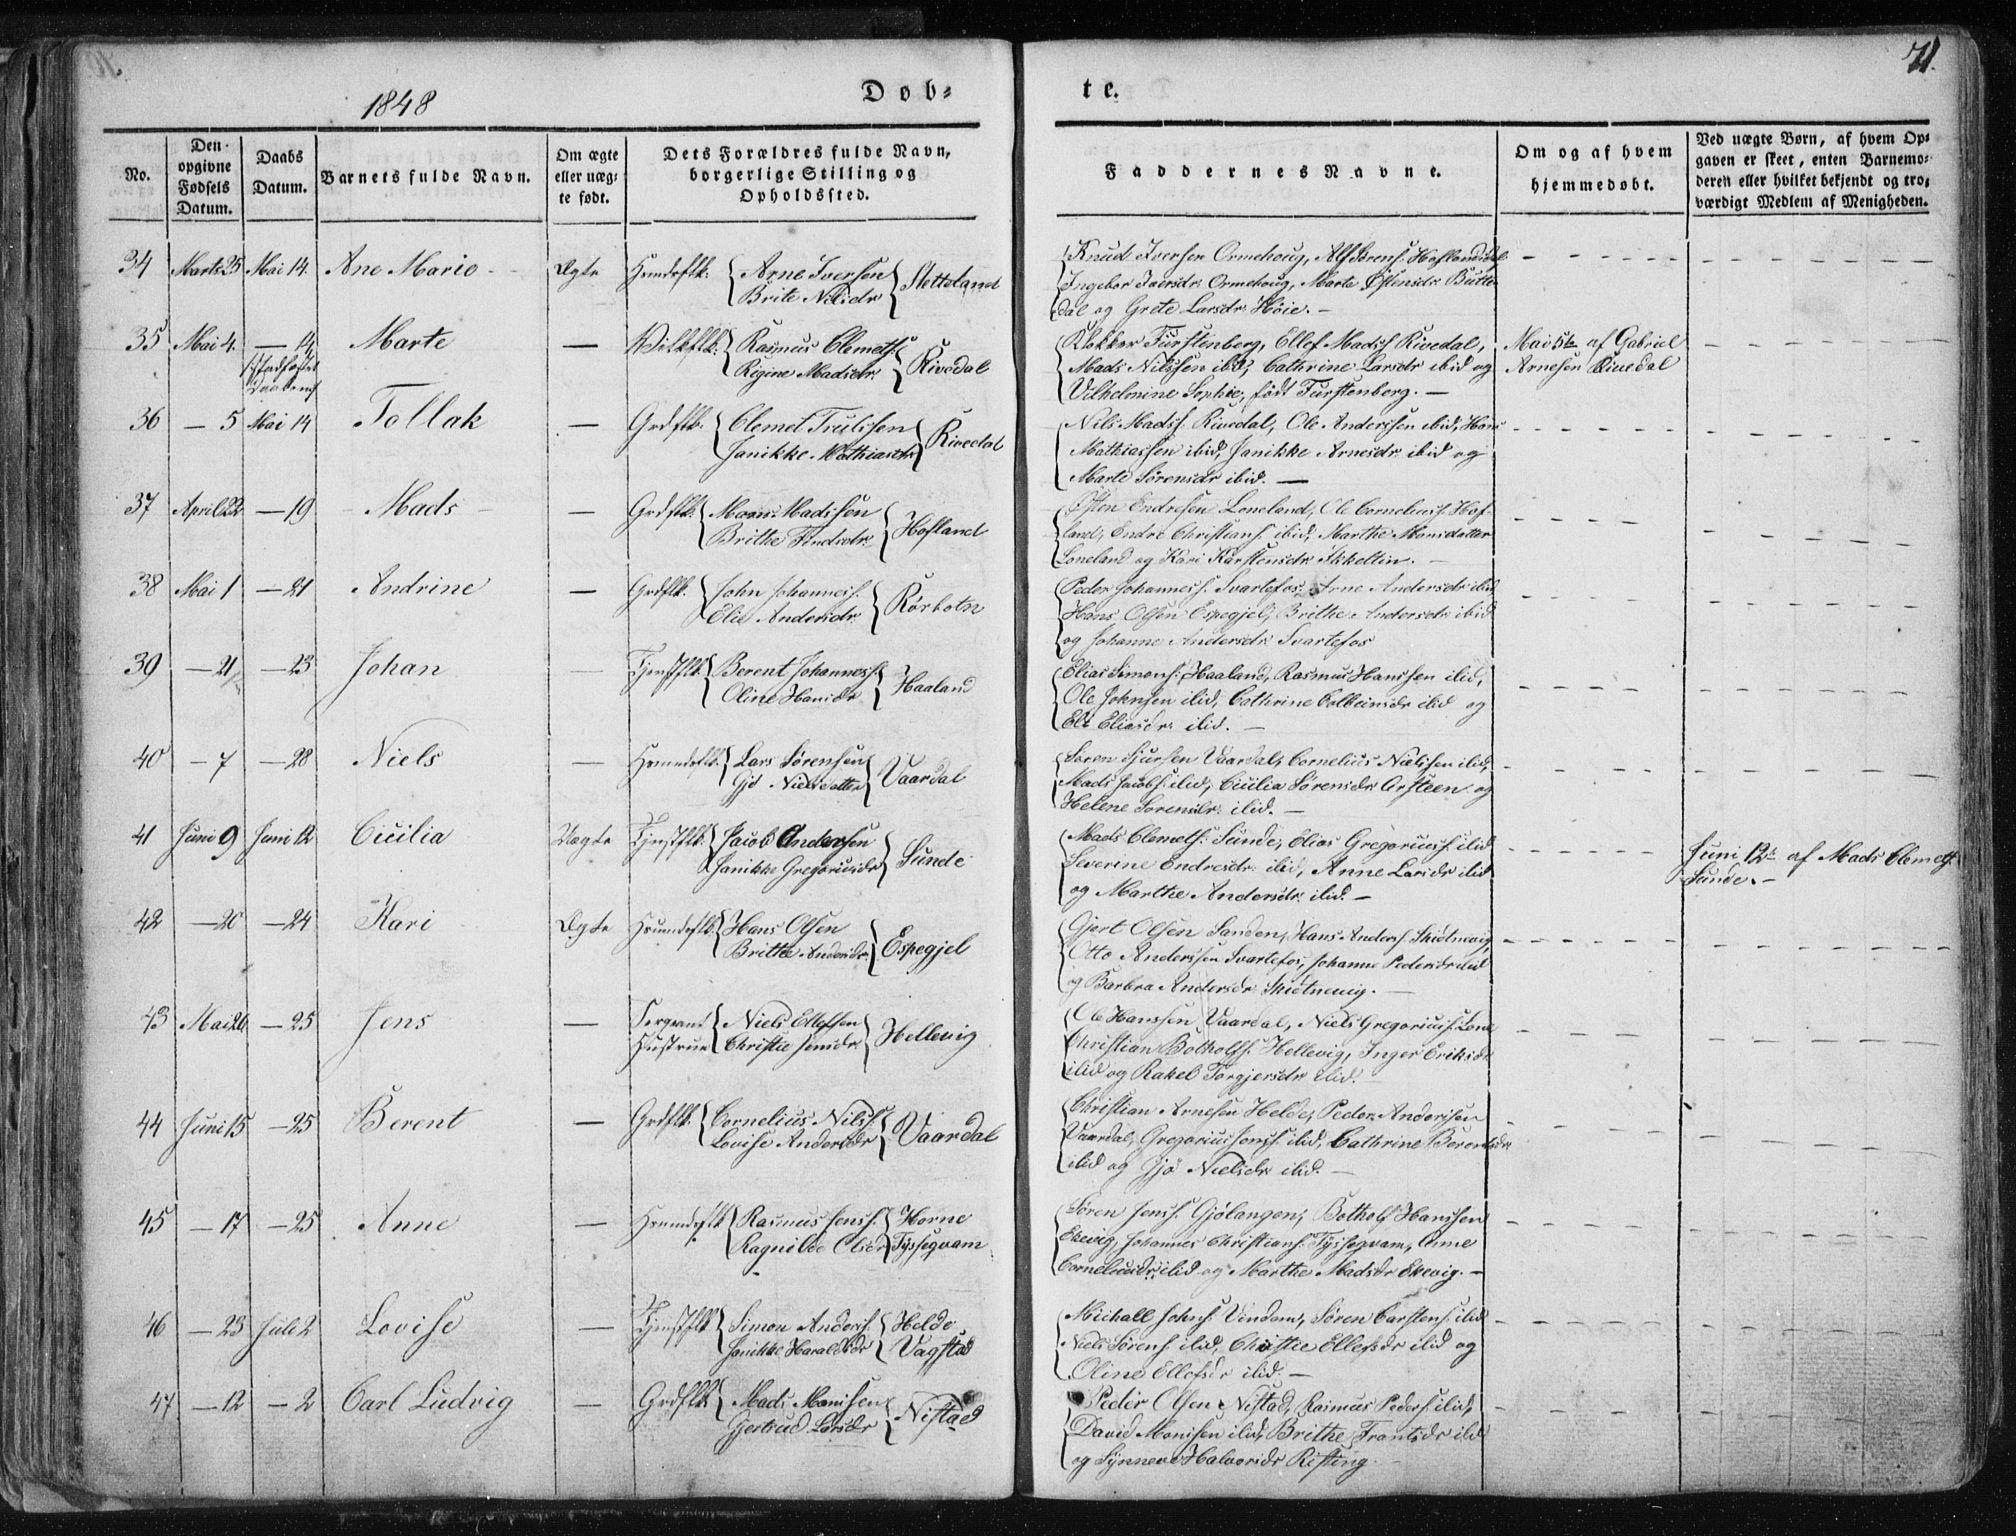 1848
Døb-
te.
71.
No.
Den
opgivne
Fødsels
Datum.
Daabs
Datum.
Barnets fulde Navn.
Om ægte
eller uæg-
te født.
Dets Forældres fulde Navn,
borgerlige Stilling og
Opholdssted.
Faddernes Navne.
Om og af hvem
hjemmedøbt.
Ved uægte Børn, af hvem Op-
gaven er skeet, enten Barnemo-
deren eller hvilket bekjendt og tro-
værdigt Medlem af Menigheden.
34 Marts 25 Mai 14. Ane Marie Ægte Huusmdsflk. Arne Iversen Sletteland
Brite Nilsdr
Knud Iversen Ormehoug, Alf Sørens. Hoflandsdal
Ingebor Iversdr Ormehoug, Marte Østensdr Butte-
dal og Grete Larsdr Høie. —
35 Mai 4. — 14 Marte — Rasmus Clemets. Rivedal
Rigine Madsdr
stadfæstet
Daaben
Klokker Fürstenberg, Ellef Mads. Rivedal,
Mads Nilssen ibid, Cathrine Larsdr ibid og
Vilhelmine Sophie, født Furstenberg. —
Mai 5te af Gabriel
Arnesen Rivedal
36 — 5 Mai 14 Tollak — Grdflk. Clemet Trulssen Rivedal
Janikke Mathiasdr
Nils Mads. Rivedal, Ole Anderssen ibid, Hans
Mathiassen ibid, Janikke Arnesdr ibid og
Marte Sørensdr ibid. —
37 April 22 — 19 Mads — Grdflk. Mons Madssen Hofland
Brithe Endredr
Østen Endresen Loneland, Ole Cornelius. Hof-
land, Endre Christians. ibid, Marthe Monsdatter
Loneland og Kari Karstensdr
38 Mai 1 — 21 Andrine — Grdflk. John Johanness. Rørbotn
Elie Andersdr
Peder Johanness. Svartefos, Arne Andersdr ibid
Hans Olsen Espegjel, Brithe Andersdr ibid
og Johanne Andersdr Svartefos
39 — 21 — 23 Johan — Tjenstflk. Berent Johanness. Haaland
Oline Hansdr
Elias Simons. Haaland, Rasmus Hanssen ibid,
Ole Johnsen ibid, Cathrine Colbeinsdr ibid og
Eli Eliasdr ibid. —
40 — 7 — 28 Niels — Huusmdsflk. Lars Sørensen Vaardal
Gjø Nielsdatter
Søren Sjursen Vaardal, Cornelius Nielssen ibid,
Mads Jacobs. ibid, Cicilia Sørensdr Arsteen og
Helene Sørensdr ibid. —
41 Juni 9 Juni 12 Cicilia Uægte Tjenstflk. Jacob Andersen Sunde
Janikke Gregoriusdr
Mads Clemets. Sunde, Elias Gregorius. ibid
Severine Endresdr ibid, Anne Larsdr ibid
og Marthe Andersdr ibid. —
Juni 12te af Mads Clemets.
Sunde. —
42 — 20 — 24 Kari Ægte Huusmdsflk. Hans Olsen Espegjel
Brithe Andersdr
Gjert Olsen Sanden, Hans Anders.
Otto Anderssen Svartefos, Johanne Pedersdr ibid
og Barbra Andersdr
43 Mai 26 — 25 Jens — Sergeant Niels Ellefsen Hellevig
Hustrue Christie Jensdr
Ole Hanssen Vaardal, Niels Gregorius. Lone
Christian Botholfs. Hellevig, Inger Eriksdr
ibid og Rakel Torgjersdr ibid.
44 Juni 15 — 25 Berent — Grdflk. Cornelius Nils. Vaardal
Lovise Andersdr
Christian Arnesen Helde, Peder Anderssen
Vaardal, Gregorius Jens. ibid, Cathrine Berentsdr
ibid og Gjø Nielsdr ibid. —
45 — 17 — 25 Anne — Huusmdsflk Rasmus Jens. Horne
Ragnilde Olsdr Tysseqvam
Søren Jens. Gjølangen, Botholf Hanssen
Ekevig, Johannes Christians. Tysseqvam, Anne
Corneliusdr ibid og Marthe Madsdr Ekevig. —
46 — 23 Juli 2 Lovise — Tjenstflk Simon Anders. Helde
Janikke Haraldsdr Vagstad
Michall Johns. Vindem, Søren Carstens. ibid
Niels Sørens. ibid, Christie Ellefsdr ibid og
Oline Ellefsdr ibid. —
47 — 12 — 2 Carl Ludvig — Grdflk Mads Monssen Nistad
Gjertrud Larsdr
Peder Olsen Nistad, Rasmus Peders. ibid,
David Monssen ibid, Brithe Frantsdr ibid
og Synneve Halvorsdr Risting.